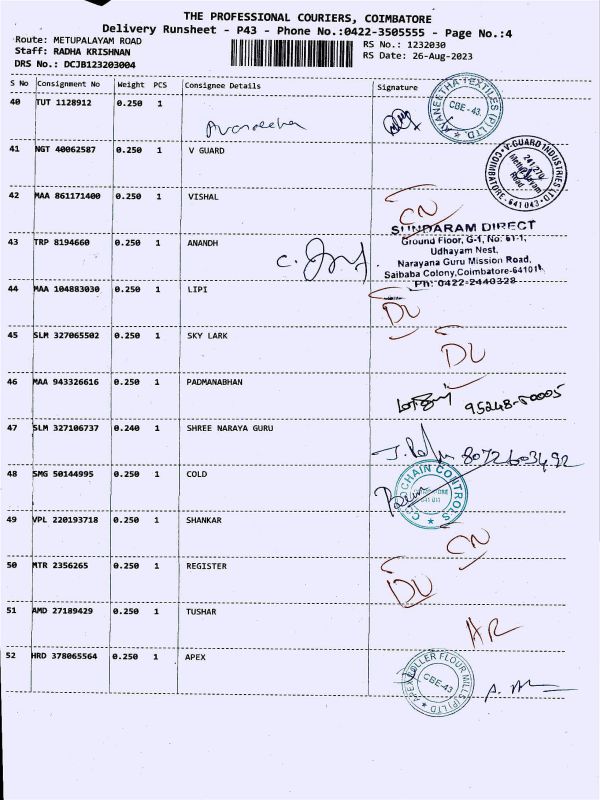 THE PROFESSIONAL COURIERS, COIMBATORE
Delivery Runsheet - P43 - Phone No.:0422-3505555 - Page No.:4
Route: METUPALAYAM ROAD
Staff: RADHA KRISHNAN
DRS No.: DCJB123203004
RS No.: 1232030
RS Date: 26-Aug-2023
S No Consignment No Weight PCS Consignee Details Signature
40 TUT 1128912 0.250 1
AVANEETHA TEXTILES (P) LTD. CBE-43.
41 NGT 40062587 0.250 1 V GUARD
V-GUARD INDUSTRIES LTD COIMBATORE - 641 043
Road
42 MAA 861171400 0.250 1 VISHAL
CN
SUNDARAM DIRECT
Ground Floor, G-1, No: 61-1,
Udhayam Nest,
Narayana Guru Mission Road,
Saibaba Colony,Coimbatore-641011.
Ph: 0422-2440328
43 TRP 8194660 0.250 1 ANANDH
44 MAA 104883030 0.250 1 LIPI
DL
45 SLM 327065502 0.250 1 SKY LARK
DL
46 MAA 943326616 0.250 1 PADMANABHAN
95248-50005
47 SLM 327106737 0.240 1 SHREE NARAYA GURU
8072603492
48 SMG 50144995 0.250 1 COLD
COLD CHAIN CONTROLS
49 VPL 220193718 0.250 1 SHANKAR
CN
50 MTR 2356265 0.250 1 REGISTER
DL
51 AMD 27189429 0.250 1 TUSHAR
AR
52 HRD 378065564 0.250 1 APEX
APEX ROLLER FLOUR MILLS (P) LTD CBE-43